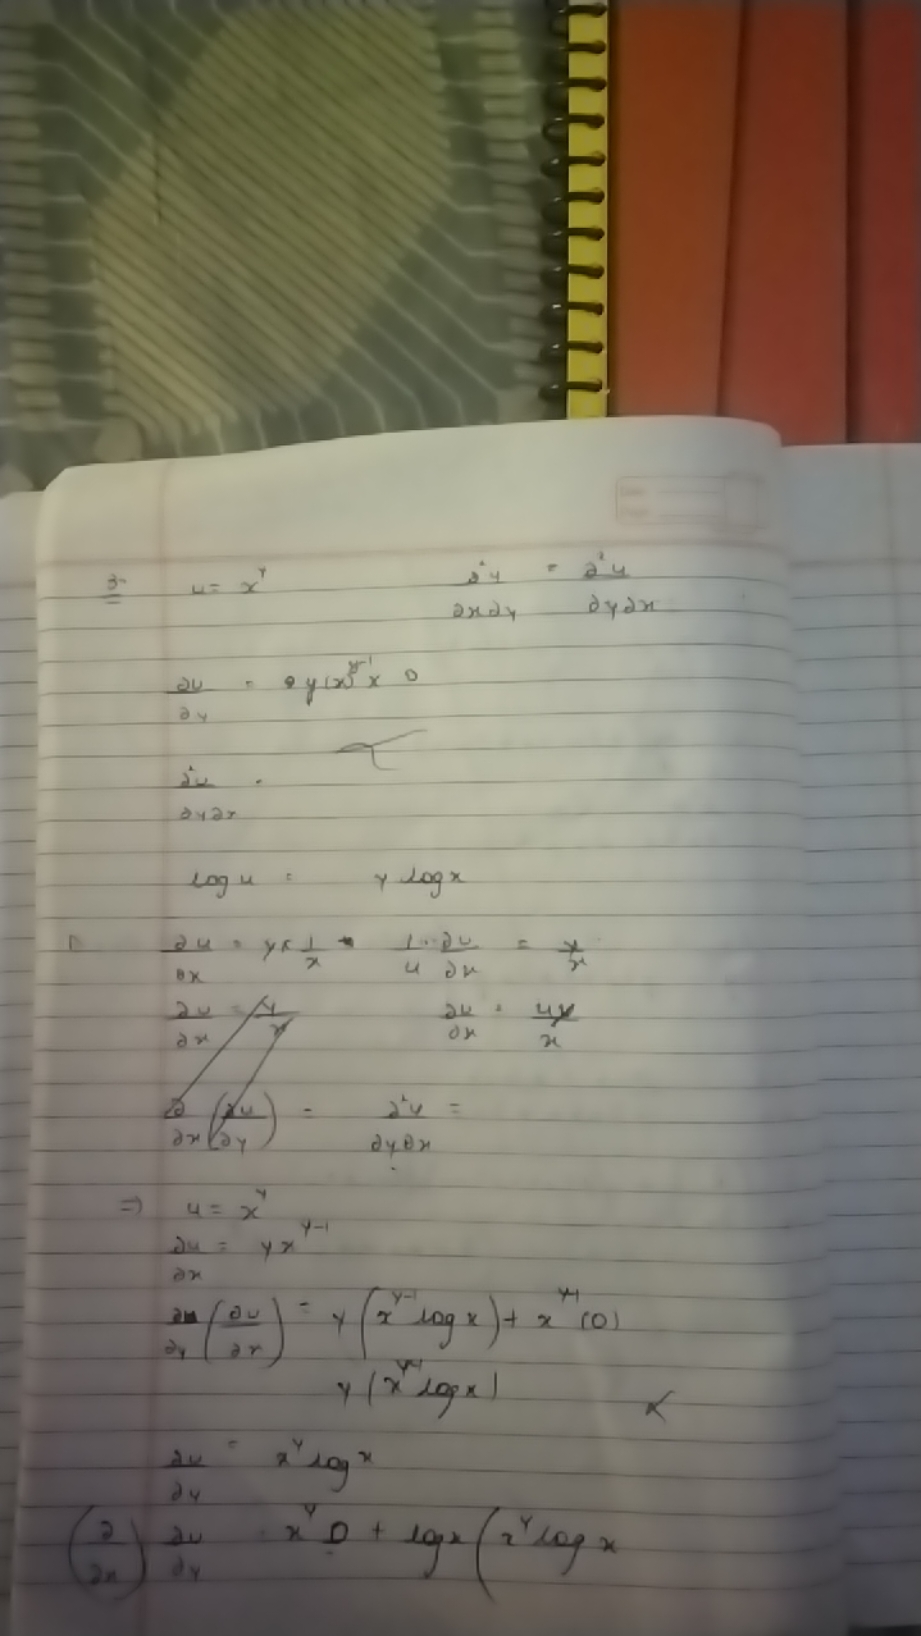 3- u = x^y ∂²u/∂x∂y = ∂²u/∂y∂x
∂u/∂y = y(x)^y-1 × 0
∂²u/∂y∂x =
log u = y log x
∂u/∂x = y × 1/x 1/u ∂u/∂x = y/x
∂u/∂x = y/x ∂u/∂x = uy/x
∂/∂x (∂u/∂y) = ∂²u/∂y∂x =
⇒ u = x^y
∂u/∂x = y x^y-1
∂/∂y (∂u/∂x) = y (x^y-1 log x) + x^y-1 (0)
y (x^y-1 log x)
∂u/∂y = x^y log x
(∂/∂x) ∂u/∂y = x^y 0 + log x (x^y log x